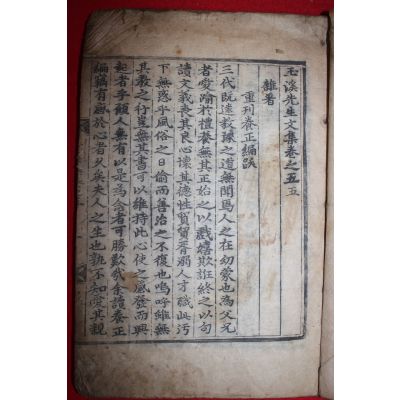 玉溪先生文集卷之五
雜著
重刊養正編跋
三代旣遠教豫之道無聞焉人之在幼蒙也為父兄
者愛踰於禮養無其正始之以戱嬉欺誑終之以句
讀文義喪其良心壞其德性貿貿胥溺人才職此污
下無惑乎風俗之日偷而善治之不復也嗚呼雖無
其教之行豈無其書可以維持此心使之感發而興
起者乎顧人無有以是為念者可勝歎哉余讀養正
編竊有感於心者久矣夫人之生也孰不知愛其親